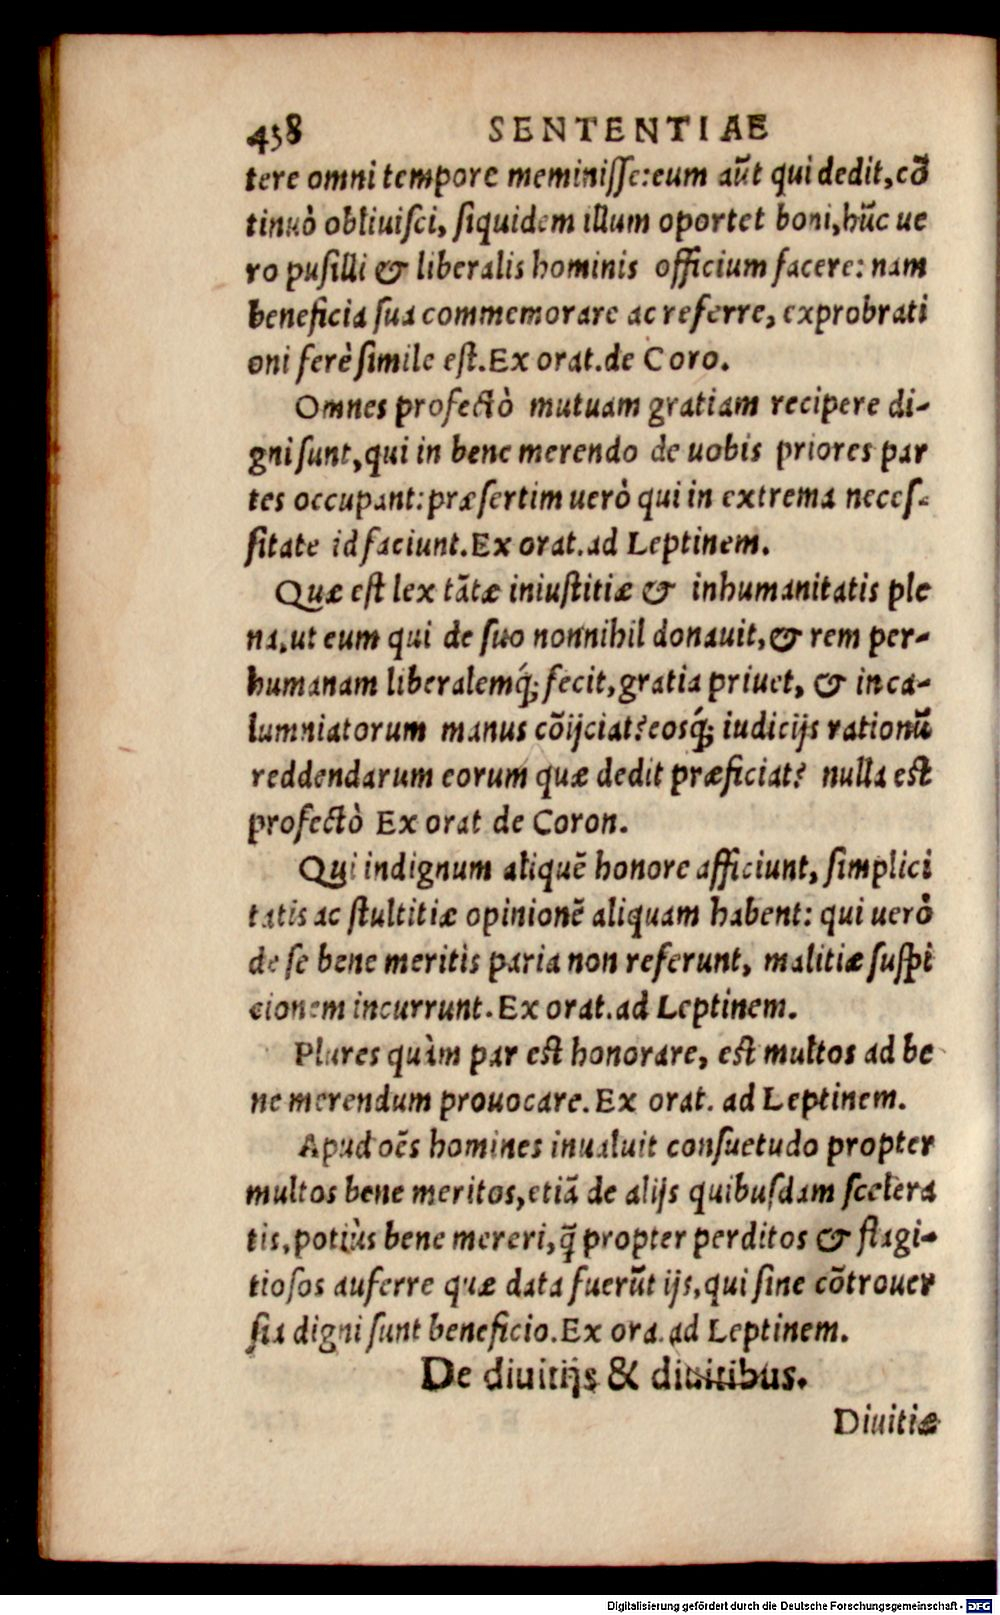 438 SENTENTIAE
tere omni tempore meminisse: eum aūt qui dedit, cō
tinuò obliuisci, siquidem illum oportet boni, hūc ue
ro pusilli & liberalis hominis officium facere: nam
beneficia sua commemorare ac referre, exprobrati
oni ferè simile est. Ex orat. de Coro.
Omnes profectò mutuam gratiam recipere di-
gni sunt, qui in bene merendo de uobis priores par
tes occupant: præsertim uerò qui in extrema neces-
sitate id faciunt. Ex orat. ad Leptinem.
Quæ est lex tātæ iniustitiæ & inhumanitatis ple
na, ut eum qui de suo nonnihil donauit, & rem per-
humanam liberalemq́; fecit, gratia priuet, & in ca-
lumniatorum manus cōijciat? eosq́; iudicijs rationū
reddendarum eorum quæ dedit præficiat? nulla est
profectò Ex orat de Coron.
Qui indignum aliquē honore afficiunt, simplici
tatis ac stultitiæ opinionē aliquam habent: qui uerò
de se bene meritis paria non referunt, malitiæ suspi
cionem incurrunt. Ex orat. ad Leptinem.
Plures quàm par est honorare, est multos ad be
ne merendum prouocare. Ex orat. ad Leptinem.
Apud oēs homines inualuit consuetudo propter
multos bene meritos, etiā de alijs quibusdam scelera
tis, potiùs bene mereri, q̄ propter perditos & flagi-
tiosos auferre quæ data fuerūt ijs, qui sine cōtrouer
sia digni sunt beneficio. Ex ora. ad Leptinem.
De diuitijs & diuitibus.
Diuitiæ
Digitalisierung gefördert durch die Deutsche Forschungsgemeinschaft - DFG